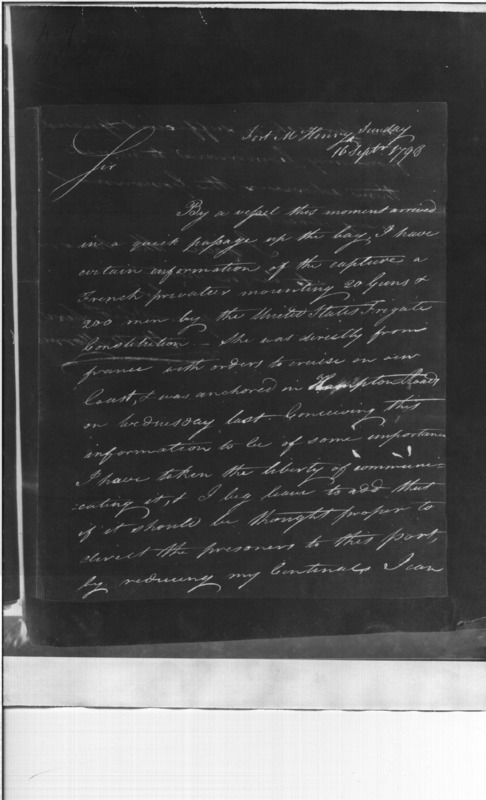 Fort McHenry Sunday
16 Septr 1798
Sir
By a vessel this moment arrived
in a quick passage up the bay, I have
certain information of the capture a
French privateer mounting 20 Guns &
200 men by the United States Fregate
Constitution – She was directly from
france with orders to cruise on our
Coast, & was anchored in Hampton Roads
on Wednesday last. Conceiving this
information to be of some importance
I have taken the liberty of communi-
-cating it, & I beg leave to add that
if it should be thought proper to
direct the presoners to this port,
by reduceing my Centinals I can